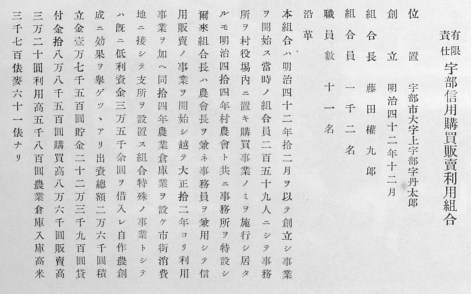 有限
責任
宇部信用購買販賣利用組合
位置 宇部市大字上宇部字丹太郎
創立 明治四十二年十二月
組合長 藤田權九郎
組合員 一千二名
職員數 十一名
沿革
本組合ハ明治四十二年拾二月ヲ以テ創立シ事業
ヲ開始ス當時ノ組合員二百五十九人ニシテ事務
所ヲ村役場内ニ置キ購買事業ノミヲ施行シ居タ
ルモ明治四十四年村農會ト共ニ事務所ヲ特設シ
爾來組合長ハ農會長ヲ兼ネ事務員ヲ兼用シテ信
用販賣ノ事業ヲ開始シ越ヘテ大正拾二年ヨリ利用
事業ヲ加ヘ同拾四年農業倉庫ヲ設ケ市街消費
地ニ接シテ支所ヲ設置ス組合特殊ノ事業トシテ
ハ既ニ低利資金三万五千余圓ヲ借入レ自作農創
成ニ効果ヲ擧ゲツヽアリ出資總額二万六千圓積
立金壹万七千五百圓貯金二十二万三千九百圓貸
付金拾八万八千五百圓購買高八万六千圓販賣高
三万二十圓利用高五千八百圓農業倉庫入庫高米
三千七百俵麥六十一俵ナリ